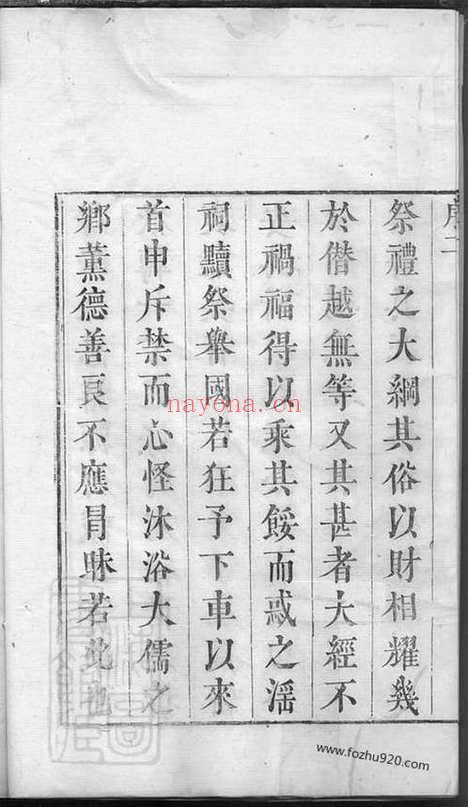 序二
祭禮之大綱其俗以財相耀幾
於僭越無等又其甚者大經不
正禍福得以乘其餒而惑之淫
祠黷祭舉國若狂予下車以來
首申斥禁而心怪沐浴大儒之
鄉薰德善良不應冒昧若此也
nayona.cn
www.fozhu920.com